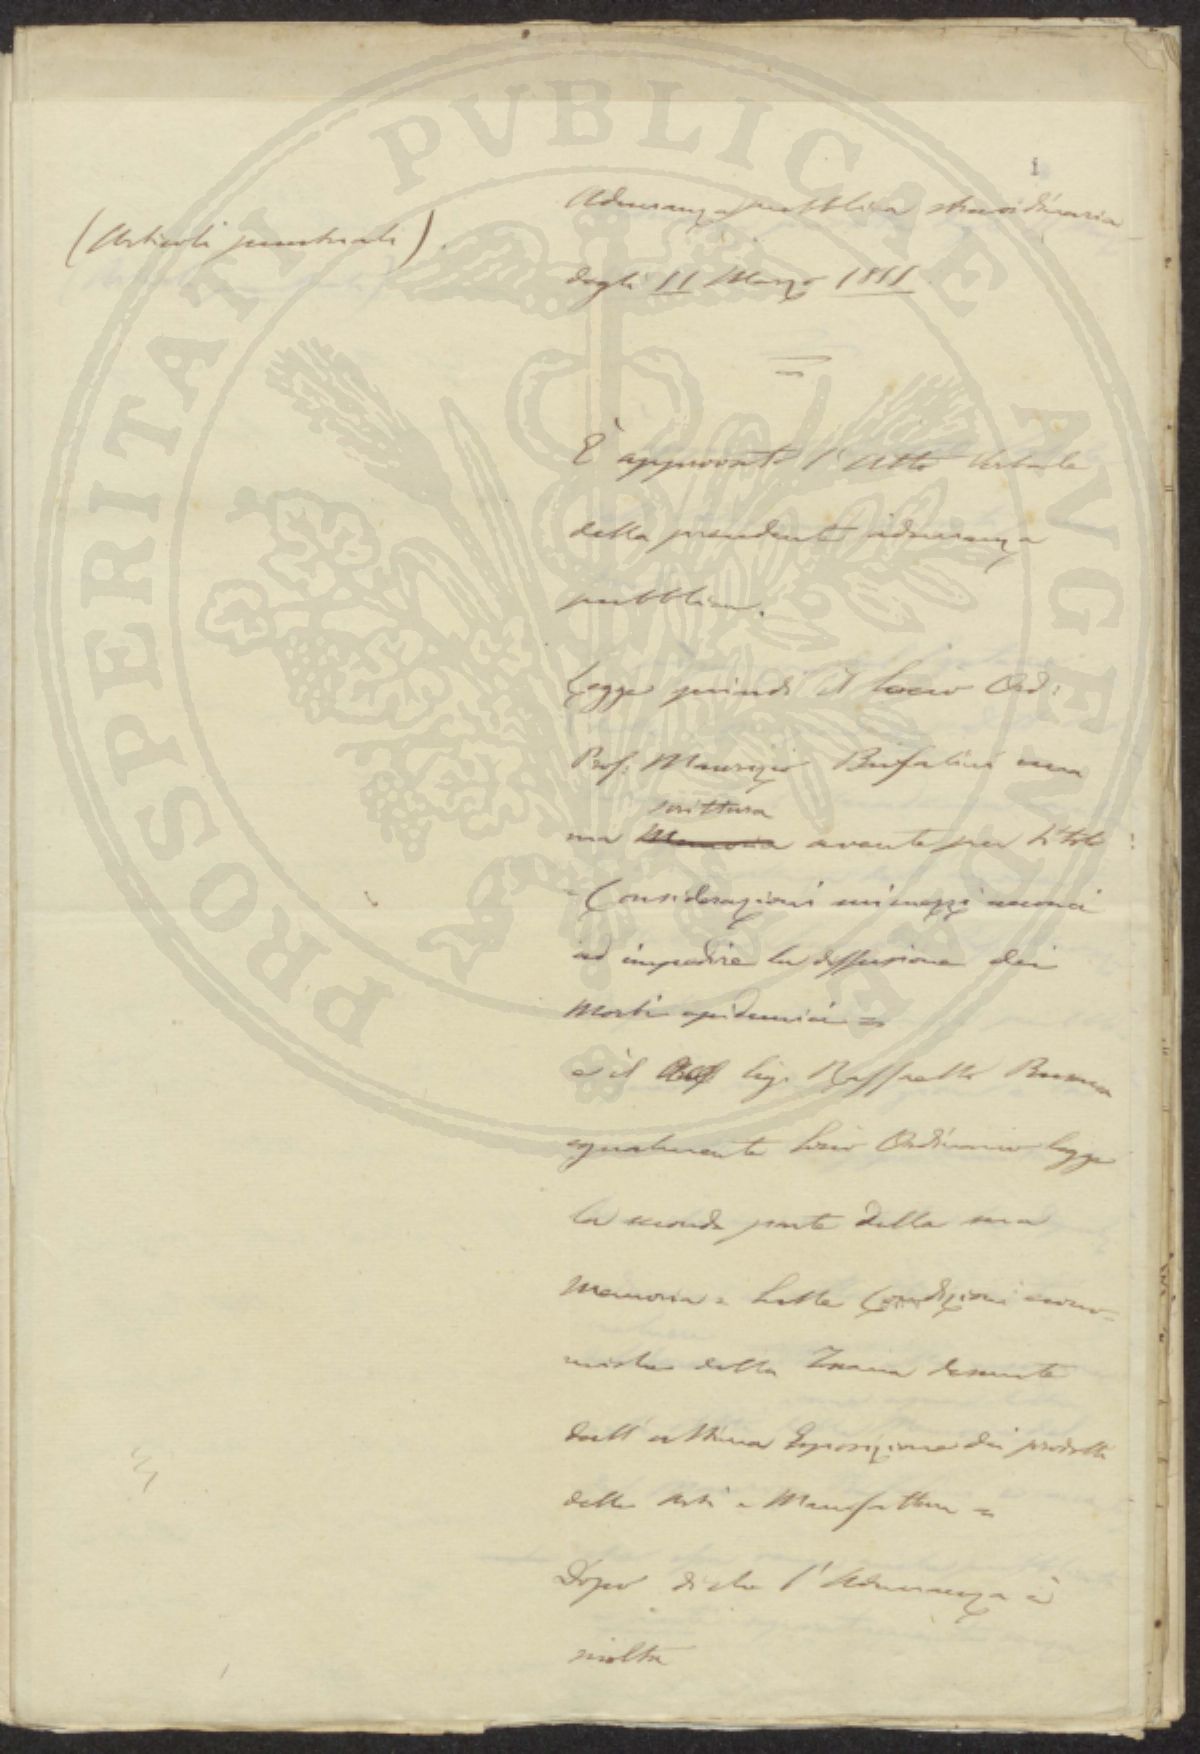 1
Adunanza pubblica straordinaria
(Articoli puntuali).
degli 11 Marzo 1855.
È approvato l'Atto Verbale
della precedente adunanza
pubblica.
Legge quindi il Socio Ord:
Prof: Maurizio Bufalini una
scrittura
sua Memoria avente per titolo:
= Considerazioni sui mezzi acconci
ad impedire la diffusione dei
Morbi epidemici =
e il Sig. Raffaello Busacca
egualmente Socio Ordinario legge
la seconda parte della sua
Memoria = Sulle Condizioni econo-
miche della Toscana desunte
dall'ultima Esposizione dei prodotti
delle Arti e Manifatture =
Dopo di che l'Adunanza è
sciolta
PROSPERITATI PVBLICAE AVGENDAE